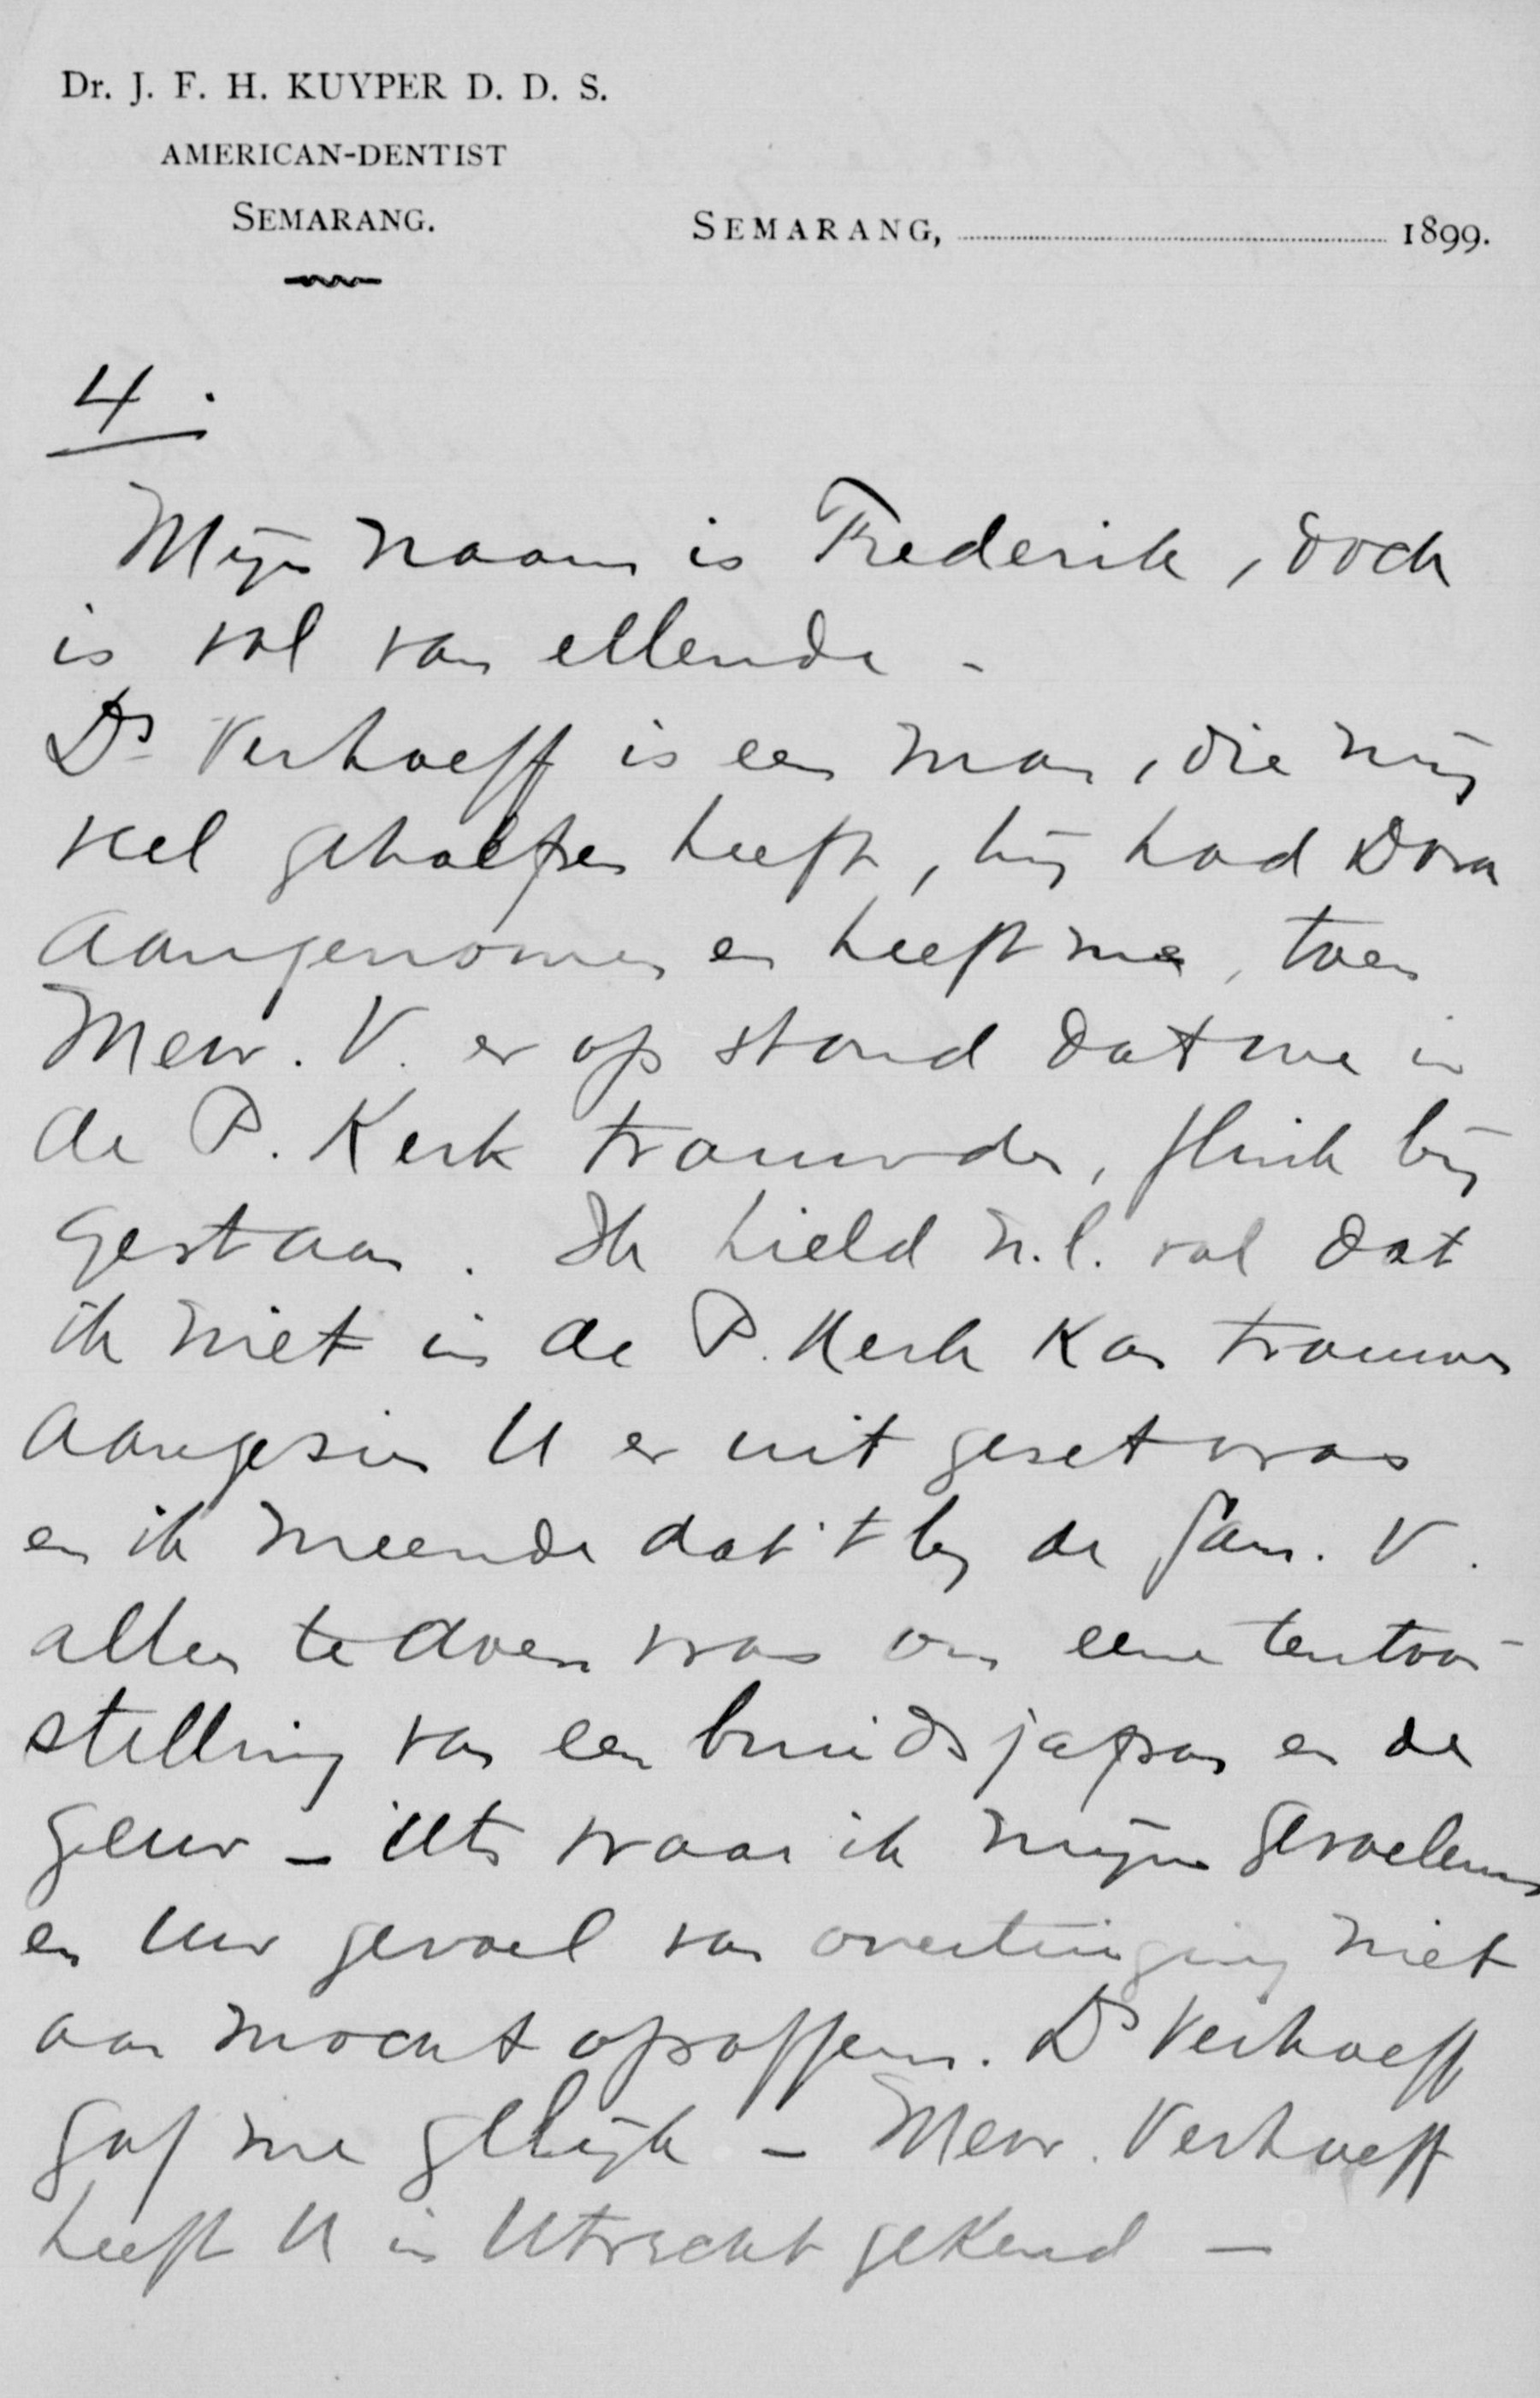 Dr. J. F. H. KUYPER D. D. S.
AMERICAN-DENTIST
SEMARANG.
SEMARANG, 1899.
4.
Mijn naam is Frederik, doch
is vol van ellende -
Ds Verhoeff is een man, die mij
veel geholpen heeft, hij had Dora
aangenomen en heeft me, toen
Mevr. V. er op stond dat we in
de P. Kerk trouwden, flink bij
gestaan. Ik hield n.l. vol dat
ik niet in de P. Kerk kon trouwen
aangezien U er uit gezet was
en ik meende dat 't bij de fam. V.
alleen te doen was om eene tentoon-
stelling van een bruidsjapon en de
geur - iets waar ik mijne gevoelens
en Uw gevoel van overtuiging niet
aan mocht opofferen. Ds Verhoeff
gaf me gelijk - Mevr. Verhoeff
heeft U in Utrecht gekend -